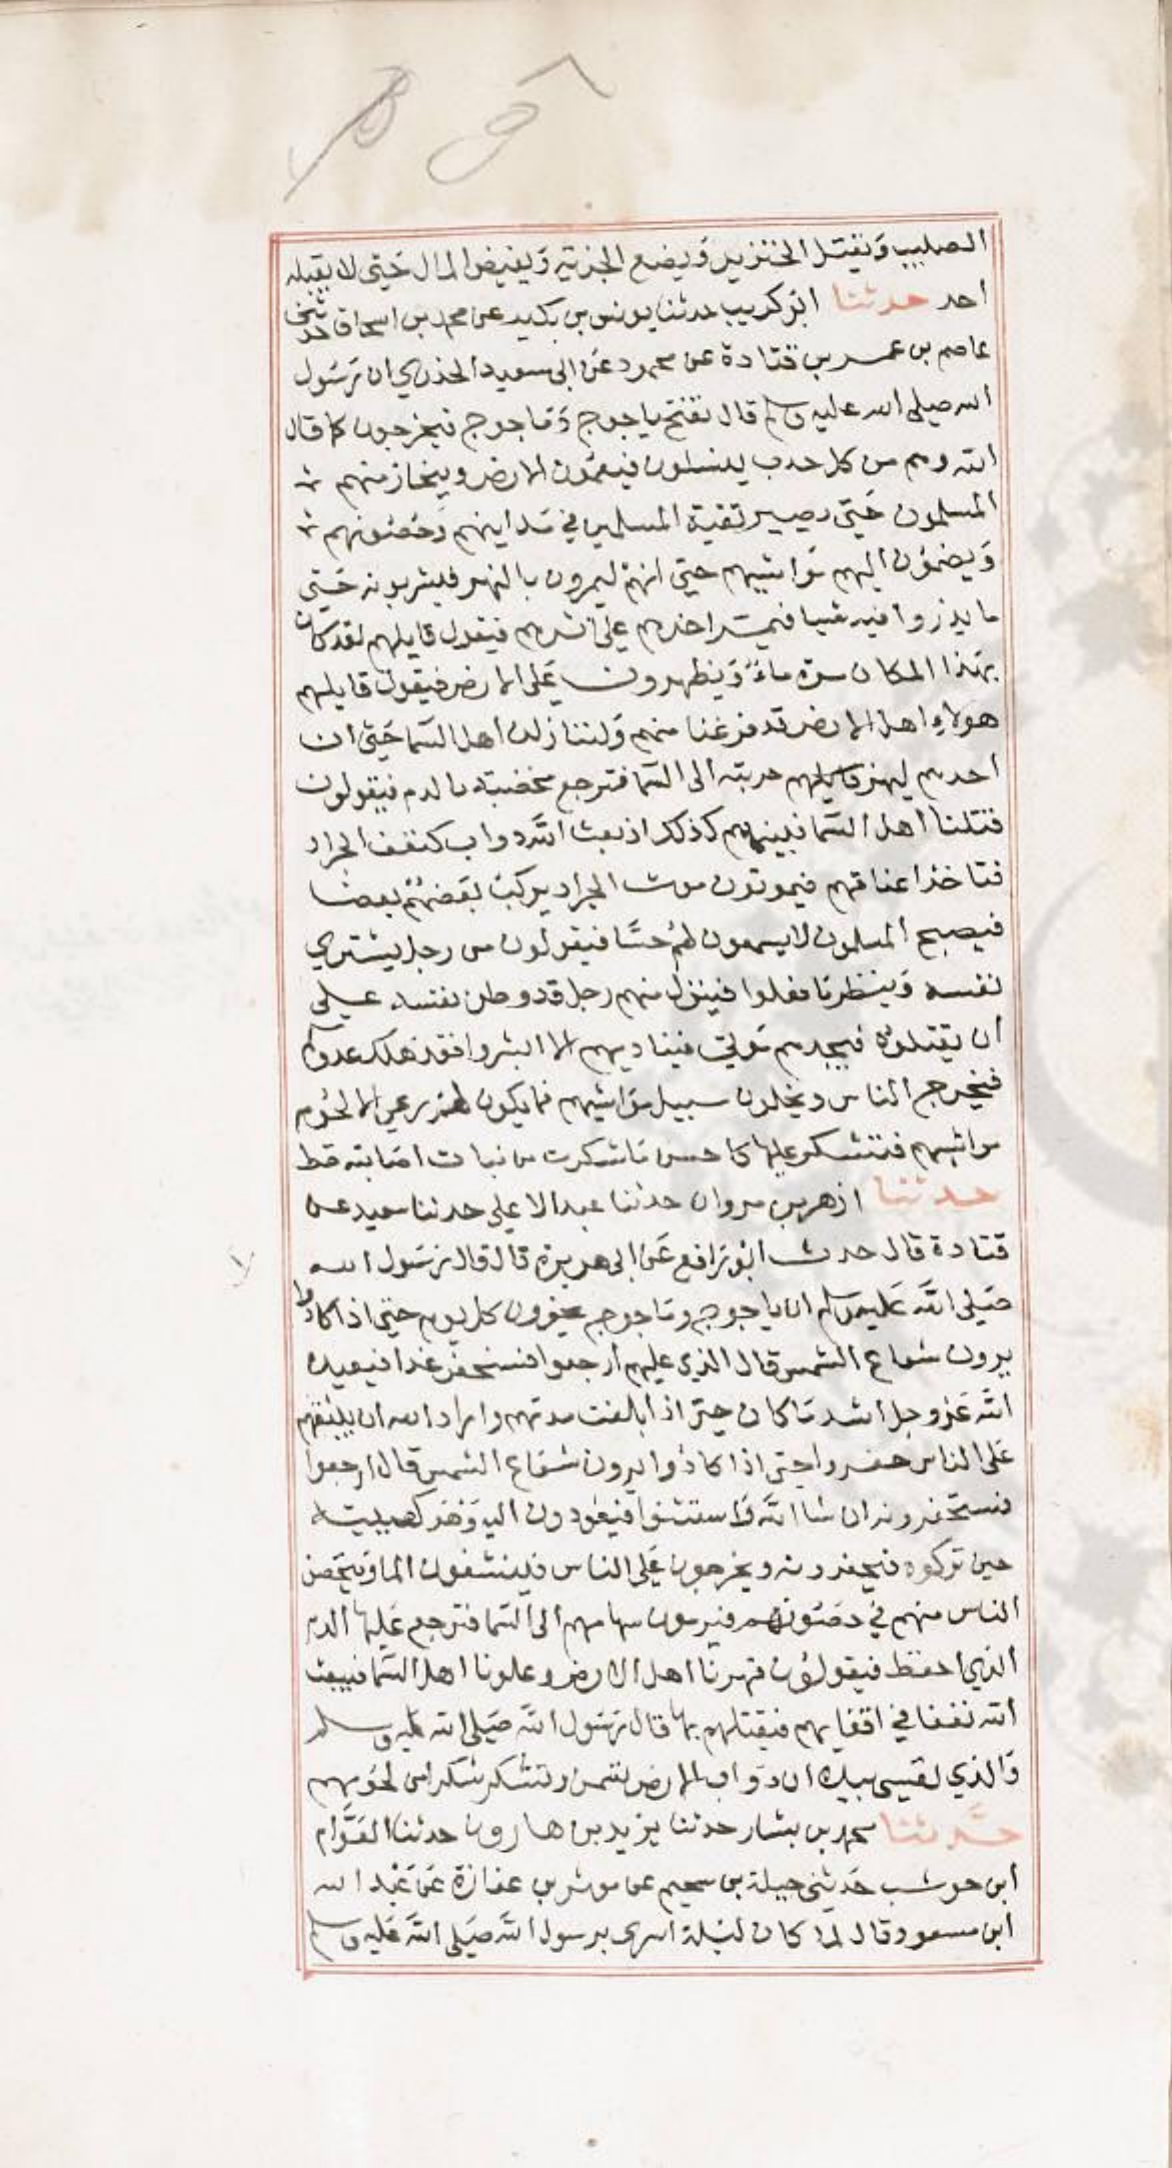 الصليب ويقتل الخنزير ويضع الجزية ويفيض المال حتى لا يقبله
احد حدثنا ابو كريب حدثنا يونس بن بكير عن محمد بن اسحاق حدثني
عاصم بن عمر بن قتادة عن محمود عن ابي سعيد الخدري ان رسول
الله صلى الله عليه وسلم قال تفتح ياجوج وماجوج فيخرجون كما قال
الله وهم من كل حدب ينسلون فيعمون الارض وينحاز منهم
المسلمون حتى يصير بقية المسلمين في مداينهم وحصونهم
ويضمون اليهم مواشيهم حتى انهم ليمرون بالنهر فيشربونه حتى
ما يذروا فيه شيا فيمر اخرهم على اثرهم فيقول قايلهم لقد كان
بهذا المكان مرة ماء ويظهرون على الارض فيقول قايلهم
هولاء اهل الارض قد فرغنا منهم ولننازلن اهل السما حتى ان
احدهم ليهز حربته الى السما فترجع مخضبة بالدم فيقولون
قتلنا اهل السما فبينما هم كذلك اذ بعث الله دواب كنغف الجراد
فتاخذ اعناقهم فيموتون موت الجراد يركب بعضهم بعضا
فيصبح المسلمون لا يسمعون لهم حسا فيقولون من رجل يشتري
نفسه وينظر ما فعلوا فينزل منهم رجل قد وطن نفسه على
ان يقتلوه فيجدهم موتى فيناديهم الا ابشروا فقد هلك عدوكم
فيخرج الناس ويخلون سبيل مواشيهم فما يكون لهم رعي الا لحوم
مواشيهم فتشكر عليها كاحسن ما شكرت من نبات اصابته قط
حدثنا ازهر بن مروان حدثنا عبد الاعلى حدثنا سعيد عن
قتادة قال حدث ابو رافع عن ابي هريرة قال قال رسول الله
صلى الله عليه وسلم ان ياجوج وماجوج يحفرون كل يوم حتى اذا كادوا
يرون شعاع الشمس قال الذي عليهم ارجعوا فسنحفره غدا فيعيده
الله عز وجل اشد ما كان حتى اذا بلغت مدتهم واراد الله ان يبعثهم
على الناس حفروا حتى اذا كادوا يرون شعاع الشمس قال ارجعوا
فستحفرونه ان شا الله واستثنوا فيعودون اليه وهو كهييته
حين تركوه فيحفرونه ويخرجون على الناس فينشفون الما ويتحصن
الناس منهم في حصونهم فيرمون سهامهم الى السما فترجع عليها الدم
الذي احفظ فيقولون قهرنا اهل الارض وعلونا اهل السما فيبعث
الله نغفا في اقفايهم فيقتلهم بها قال رسول الله صلى الله عليه وسلم
والذي نفسي بيده ان دواب الارض لتسمن وتشكر شكرا من لحومهم
حدثنا محمد بن بشار حدثنا يزيد بن هارون حدثنا العوام
ابن حوشب حدثني جبلة بن سحيم عن موثر بن عفازة عن عبد الله
ابن مسعود قال لما كان ليلة اسري برسول الله صلى الله عليه وسلم